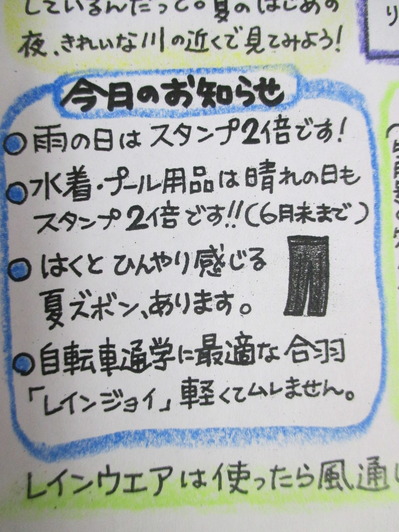 しているんだって。夏のはじめの
夜、きれいな川の近くで見てみよう!
今月のお知らせ
雨の日はスタンプ2倍です!
水着・プール用品は晴れの日も
スタンプ2倍です!!(6月末まで)
はくとひんやり感じる
夏ズボン、あります。
自転車通学に最適な合羽
「レインジョイ」軽くてムレません。
レインウエアは使ったら風通し